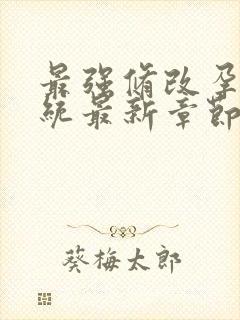 最强脩改孕
统最新章節
葵梅太郎